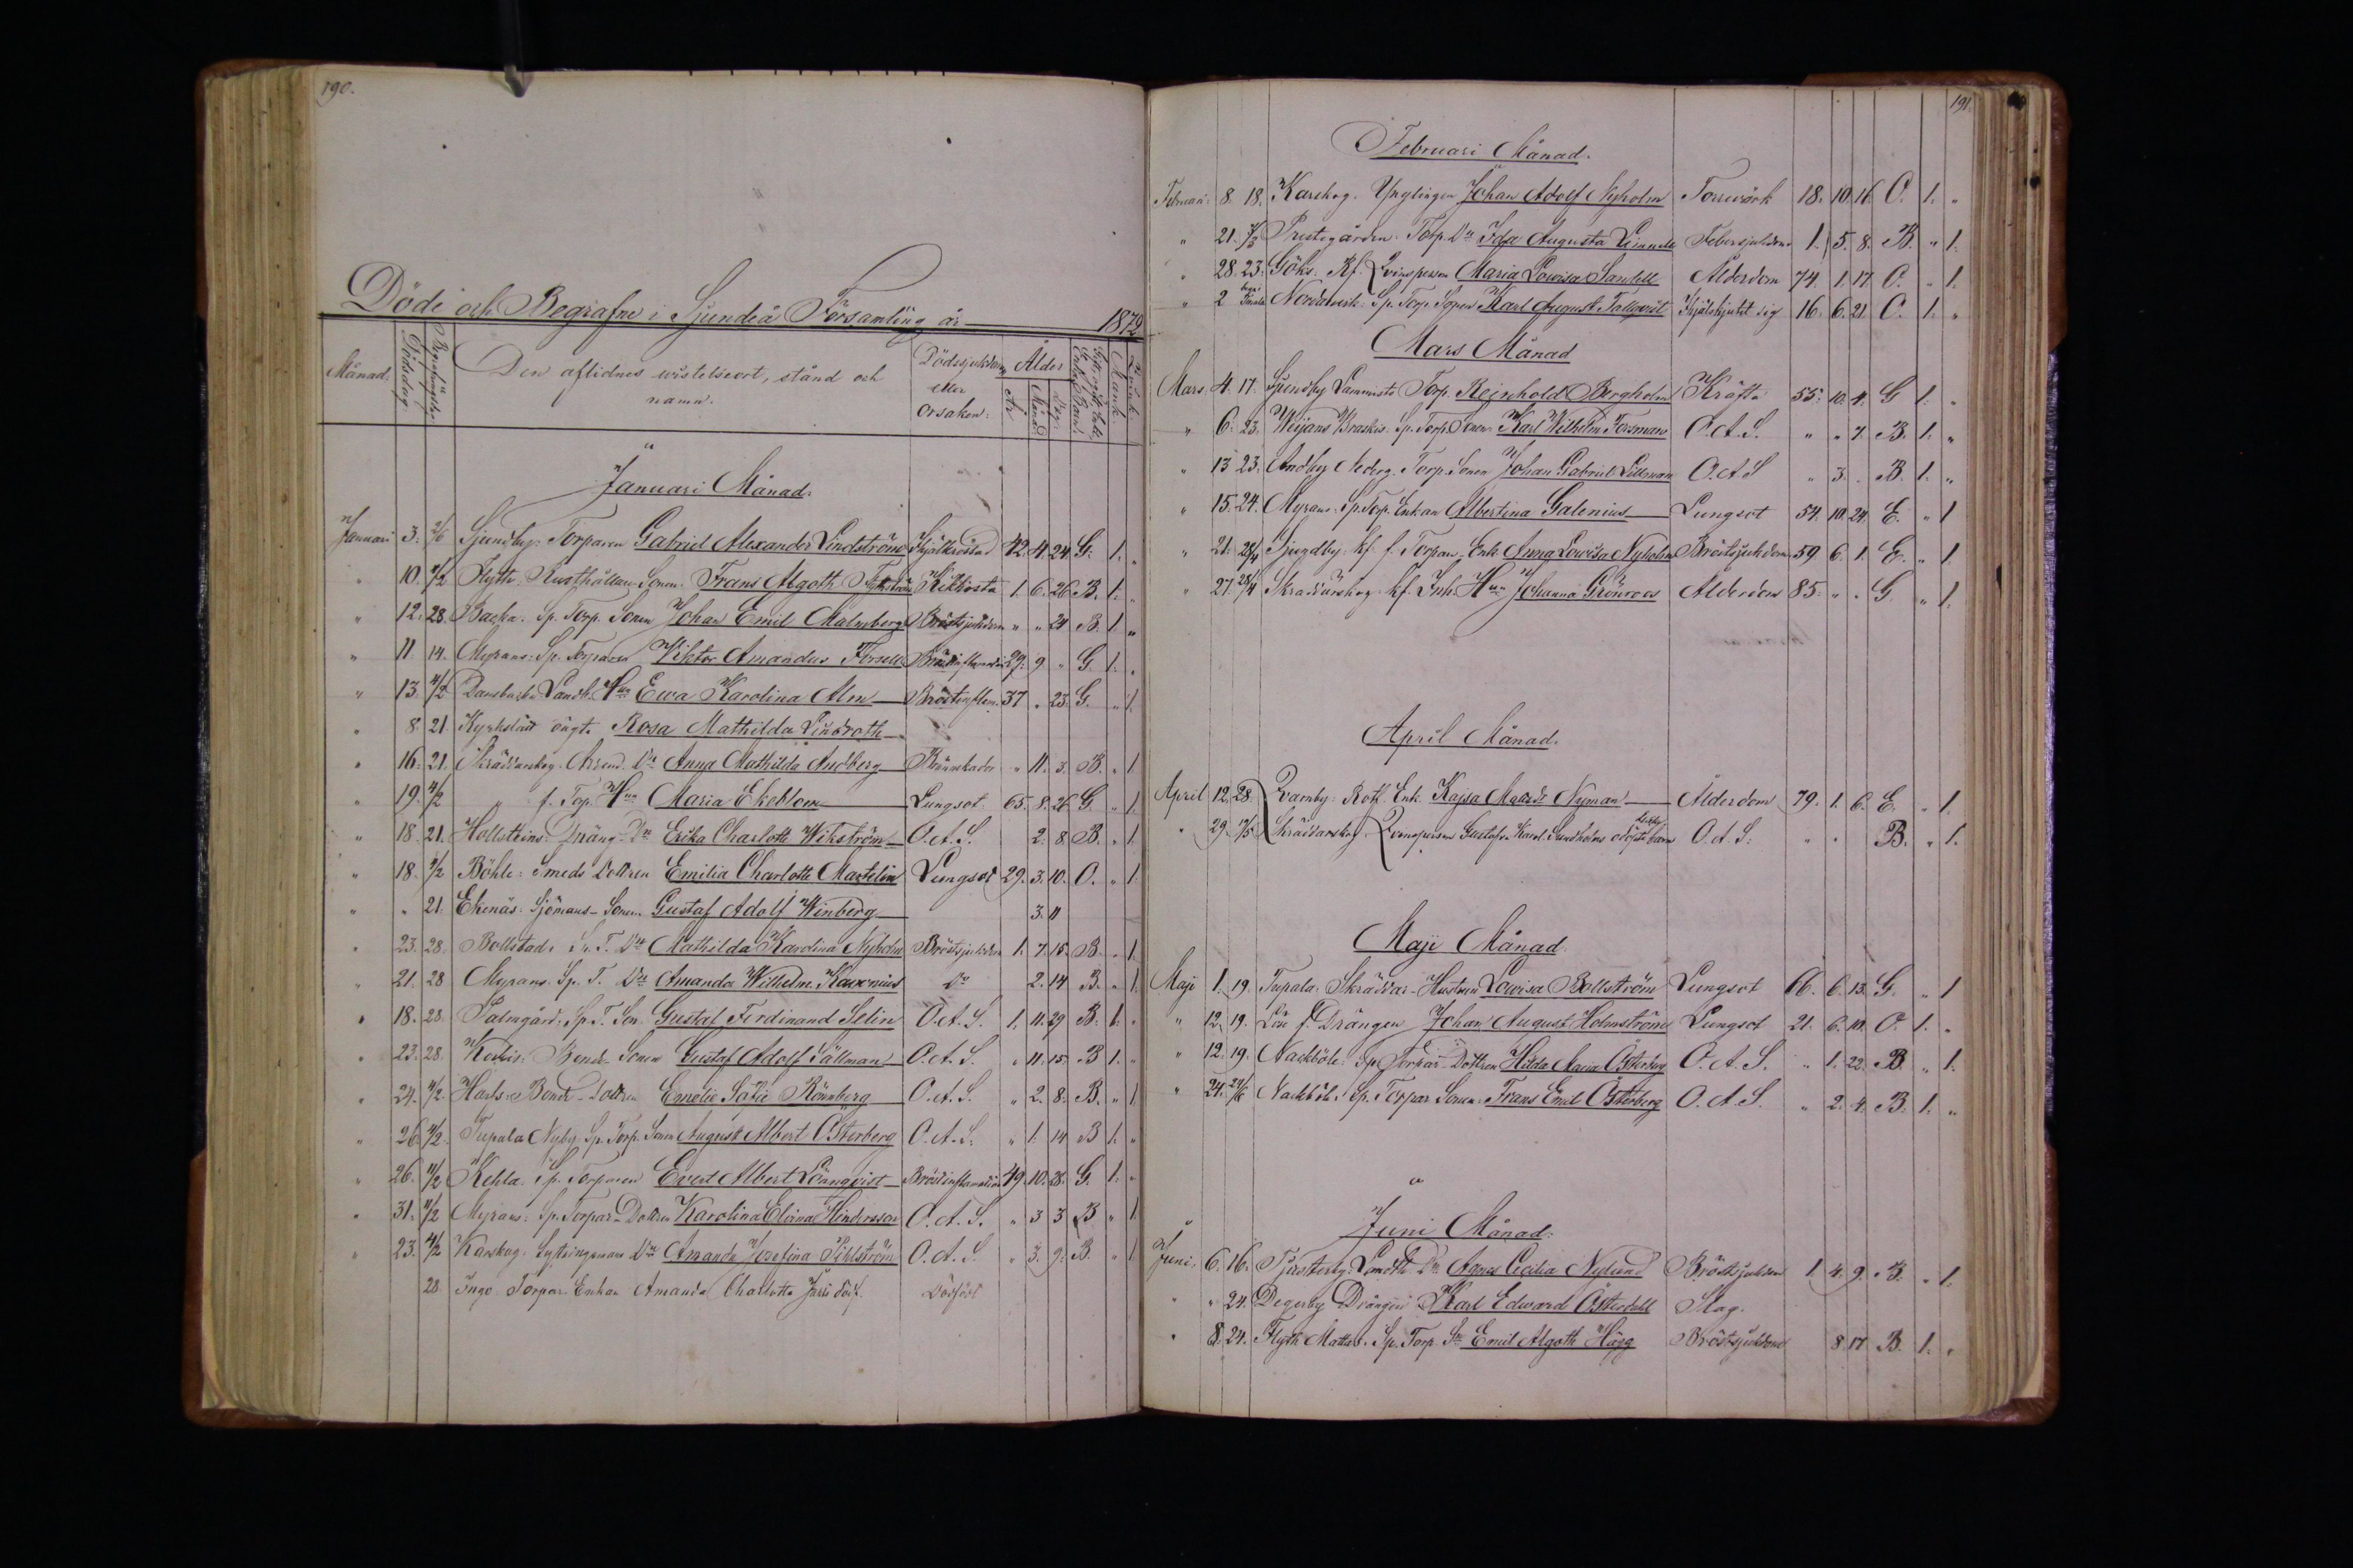 190.
Döde och Begrafne i Sjundeå Församling år 1879
Månad. Dödsdag. Begrafningsdag. Den aflidnes wistelseort, stånd och namn. Dödssjukdom eller orsaken: Ålder År Månad Dag. Mankön Qvinkön
Januari Månad.
Januari 3. 2/6 Sjundby: Torparen Gabriel Alexander Lindström 42. 4. 24 G. 1. "
" 10. Flyth: Rusthållare Sonen: Frans Algoth 1. 6. 26 B. 1. "
" 12. 28. Backa. Sp. Torp. Sonen Johan Emil Malmberg Bröstsjukdom " " 24 B. 1. "
" 11. 14. Myrans: Sp. Torparen Viktor Amandus Forsell Bröstinflammation 29. 9 " G. 1. "
" 13. 4/2 Landb. Hu Ewa Karolina Alm Bröstinflam. 37 " 23. G. " 1.
" 8. 21. Kyrkslätt oägt. Rosa Mathilda Lindroth
" 16. 21. Skräddarskog. Arrend. Dr Anna Mathilda Andberg Brännskador " 11. 3. B. " 1.
" 19. 4/2 " f. Torp. Hu Maria Ekeblom Lungsot 65. 8. 26 G. " 1.
" 18. 21. Hollsteins Dräng-Dr Erika Charlotte Wikström O.A.S. 2. 8. B. " 1.
" 18. 4/2 Böhle: Smeds Dottren Emilia Charlotte Martelin Lungsot 29. 3. 10. O. " 1.
" " 21. Ekenäs: Sjömans-Sonen Gustaf Adolf Winberg 3. 11
" 23. 28. Bollstad. Sp. T. Dr Mathilda Karolina Nyholm Bröstsjukdom 1. 7. 15. B. " 1.
" 21. 28 Myrans. Sp. T. Dr Amanda Wilhelm. Kavonius Do 2. 14 B. " 1.
" 18. 28. Palmgård: Sp. T. Son Gustaf Ferdinand Selin O.A.S. 1. 11. 29 B. 1. "
" 23. 28. Bonde Sonen Gustaf Adolf Sällman O.A.S. " 11. 15. B 1. "
" 24. 4/2. Harts. Bonde-Dottren Emelie Sofie Rönnberg O.A.S. " 2. 8. B. " 1
" 26. 4/2. Tupala Nyby. Sp. Torp. Sonen August Albert Österberg O.A.S. " 1. 14 B 1. "
" 26. 4/2 Kehla. Sp. Torparen Evert Albert Lönnqvist Bröstinflammation 49. 10. 28. G. 1. "
" 31. 4/2 Myrans: Sp. Torpar-Dottren Karolina Elvina Hindersson O.A.S. " 3 3 B " 1.
" 23. 4/2 Karskog. Dr Amanda Josefina Pihlström O.A.S. " 3. 9. B. " 1
28. Ingo. Torpar Enkan Amanda Charlotta Dödfödt
191.
Februari Månad.
Februari 8. 18. Karskog. Ynglingen Johan Adolf Nyholm Torrvärk 18. 10. 16. O. 1. "
" 21. Prestegården. Torp. Dr Ida Augusta 1. 5. 8. B. " 1.
" 28. 23. Göks. Rf. Qvinsperson Maria Lowisa Sandell Ålderdom 74. 1. 17. O. " 1.
" 2 Sp. Torp. Sonen Karl August Tallqvist Ihjälskjutit sig 16. 6. 21. O. 1. "
Mars Månad
Mars. 4. 17. Sjundby Torp. Reinhold Bergholm Kräfta 55. 10. 4. G 1. "
" 6. 23. Weijans Braskis. Sp. Torp. Sonen Karl Wilhelm Forsman O.A.S. " " 7. B. 1. "
" 13 23. Andby Nederg. Torp. Sonen Johan Gabriel Lillman O.A.S " 3. " B. 1. "
" 15. 24. Myrans: Sp. Torp. Enkan Albertina Galenius Lungsot 54. 10. 24. E. " 1
" 21. 28/4 Sjundby: Rf. f. Torpar-Enk Anna Lowisa Nyholm Bröstsjukdom 59 6. 1. E. " 1.
" 27. 28/4 Skräddarskog. Rf. Inh. Hu Johanna Grönroos Ålderdom 85. " " G. " 1.
April Månad.
April 12. 28. Qvarnby. Rotf. Enk. Kajsa Nyman Ålderdom 79. 1. 6. E. " 1.
" 29. Skräddarskog. Qvinspersonen Gustafva Karol. Sundholms odöpta barn O.A.S. " " B. " 1.
Maji Månad.
Maji 1. 19. Tupala: Skräddar-Hustrun Lowisa Bollström Lungsot 66. 6. 13. G. " 1
" 12. 19. f. Drängen Johan August Holmström Lungsot 21. 6. 10. O. 1. "
" 12. 19. Nackböle: Sp. Torpar-Dottren Hilda Maria Österberg O.A.S. " 1. 22. B. " 1.
" 24. Nackböle Sp. Torpar Sonen. Frans Emil Österberg O.A.S. " 2. 4. B. 1. "
Juni Månad.
Juni. 6. 16. Dr Agnes Cecilia Nylund Bröstsjukdom 1. 4. 9. B. " 1.
" " 24. Degerby Drängen Karl Edward Österdahl Slag.
" 8. 24. Flyth Mattas. Sp. Torp. Sn Emil Algoth Hägg Bröstsjukdom 8 17 B. 1. "